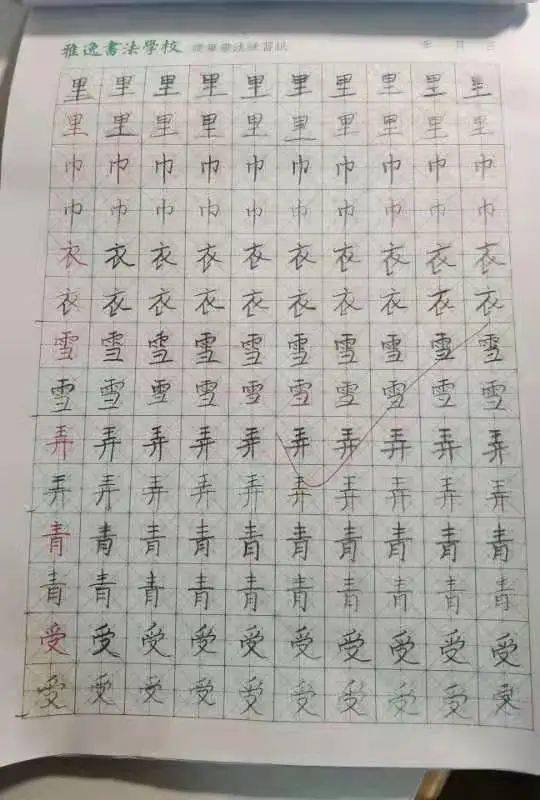 雅逸書法學校 硬筆書法練習紙 年 月 日
里里里里里里里里里里
里里里里里里里里里里
巾巾巾巾巾巾巾巾巾巾
巾巾巾巾巾巾巾巾巾巾
衣衣衣衣衣衣衣衣衣衣
衣衣衣衣衣衣衣衣衣衣
雪雪雪雪雪雪雪雪雪雪
雪雪雪雪雪雪雪雪雪雪
弄弄弄弄弄弄弄弄弄弄
弄弄弄弄弄弄弄弄弄弄
青青青青青青青青青青
青青青青青青青青青青
受受受受受受受受受受
受受受受受受受受受受